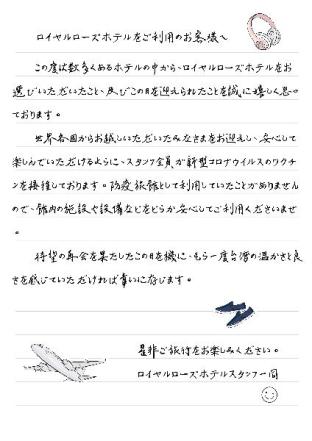 ロイヤルローズホテルをご利用のお客様へ
この度は数多くあるホテルの中から、ロイヤルローズホテルをお
選びいただいたこと、及びこの日を迎えられたことを誠に嬉しく思っ
ております。
世界各国からお越しいただいたみなさまをお迎えし、安心して
楽しんでいただけるように、スタッフ全員が新型コロナウイルスのワクチ
ンを接種しております。防疫旅館として利用していたことがありません
ので、館内の施設や設備などをどうか安心してご利用くださいませ
。
待望の再会を果たしたこの日を機に、もう一度台湾の温かさと良
さを感じていただければ幸いに存じます。
是非ご旅行をお楽しみください。
ロイヤルローズホテルスタッフ一同